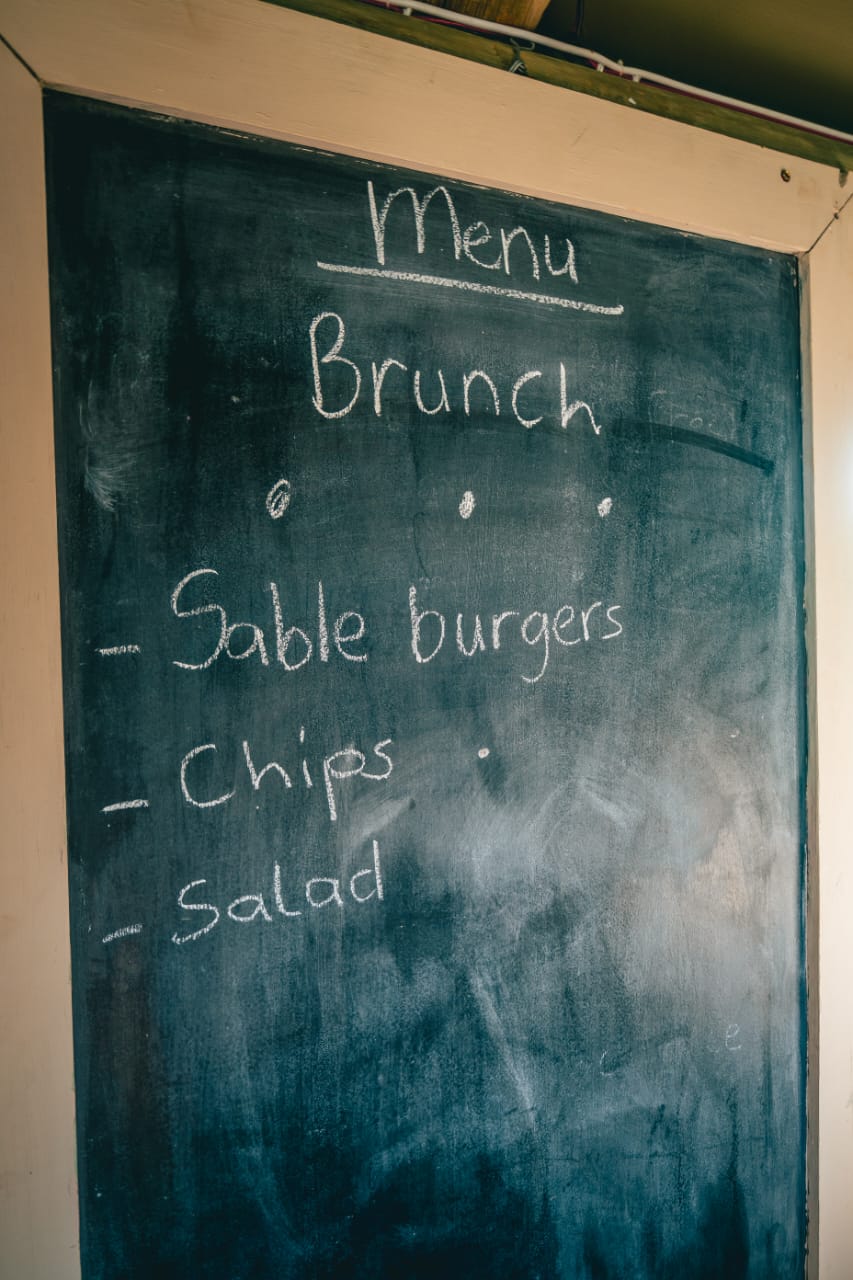 Menu
Brunch
- Sable burgers
- Chips
- Salad